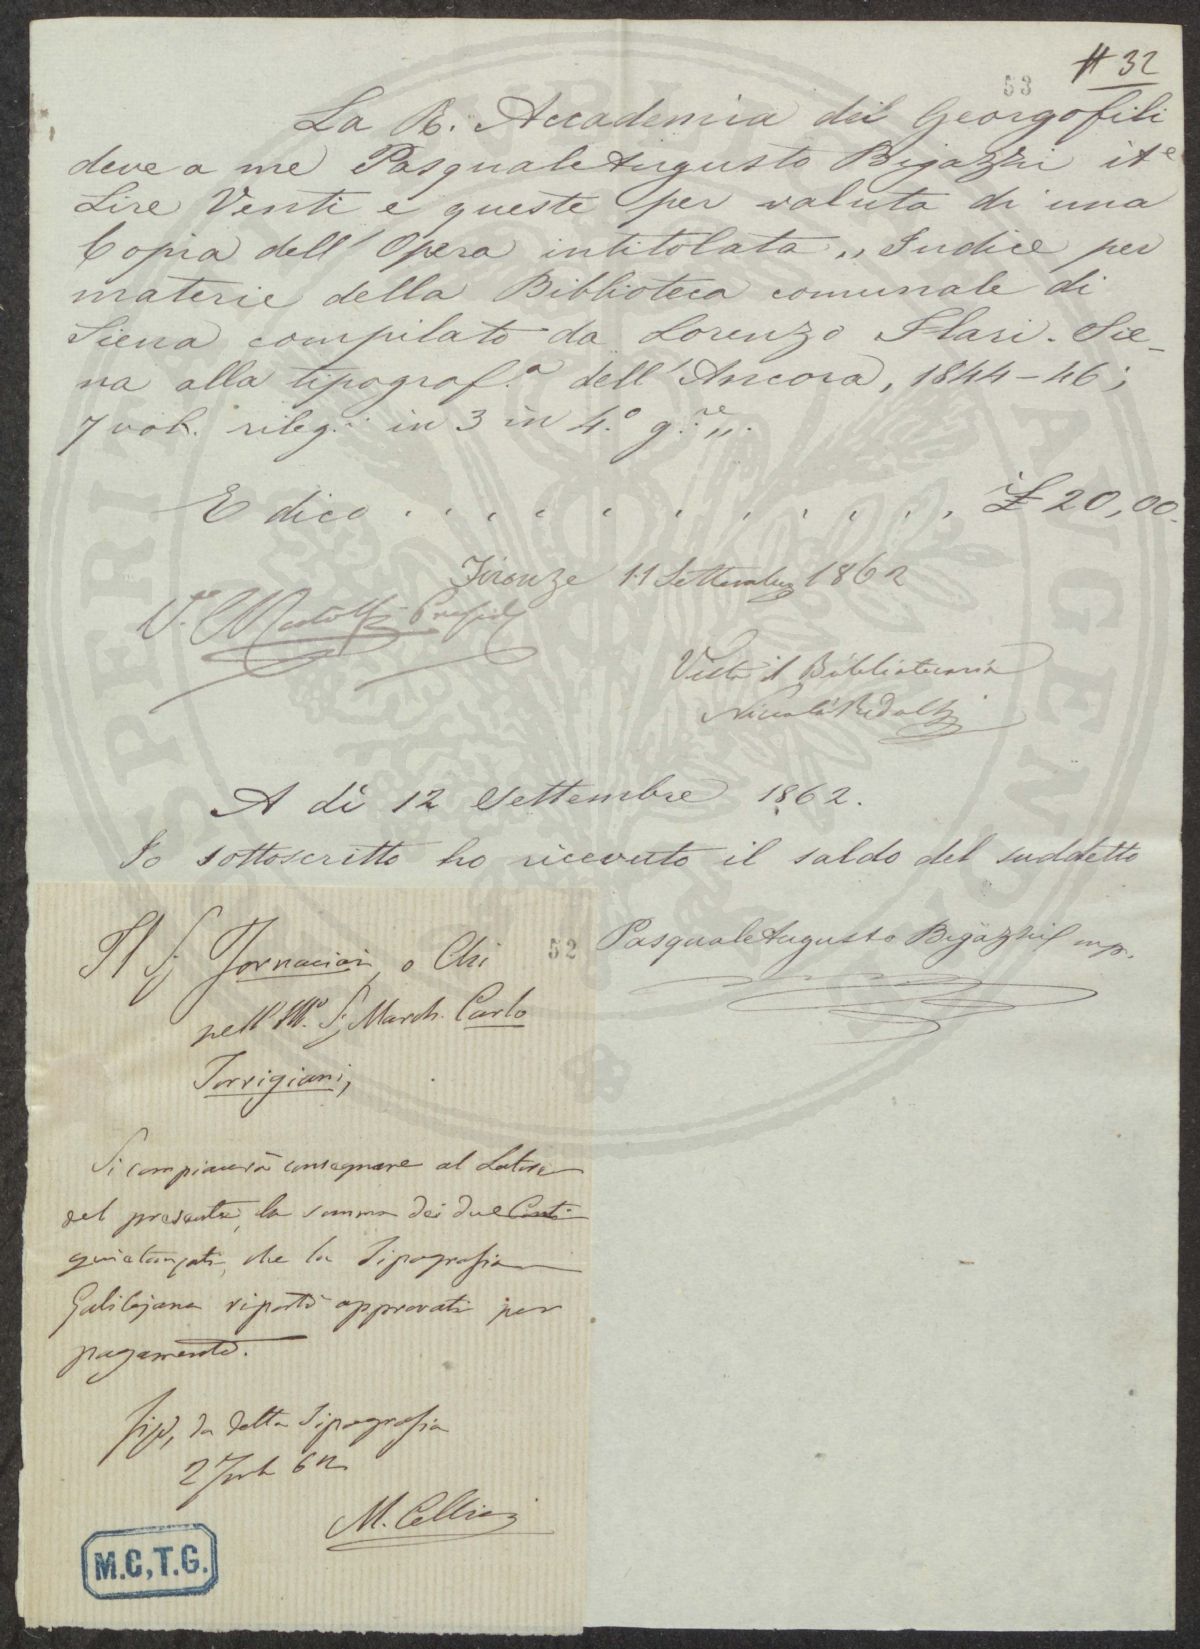 # 32
53
La R. Accademia dei Georgofili
deve a me Pasquale Augusto Bigazzi it.e
Lire Venti e queste per valuta di una
Copia dell' Opera intitolata „ Indice per
materie della Biblioteca comunale di
Siena compilato da Lorenzo Ilari. Sie-
na alla tipograf.a dell' Ancora, 1844-46;
7 vol. rileg. in 3 in 4.° g.re „.
E dico . . . . . . . . . . . . £ 20,00.
Firenze 11 Settembre 1862
V.to C Ridolfi Presid
Visto il Bibliotecario
Niccolò Ridolfi
A dì 12 Settembre 1862.
Io sottoscritto ho ricevuto il saldo del suddetto
Pasquale Augusto Bigazzi mp.
52
Il S. Fornaciari, o Chi
nell' Ill.mo S. March. Carlo
Torrigiani,
Si compiacerà consegnare al Latore
del presente, la somma dei due Conti
quietanzati, che la Tipografia
Galilejana riportò approvati per
pagamento.
da detta Tipografia
62
M. Cellini
M.C,T.G.
PROSPERITATI PUBLICAE AUGENDAE